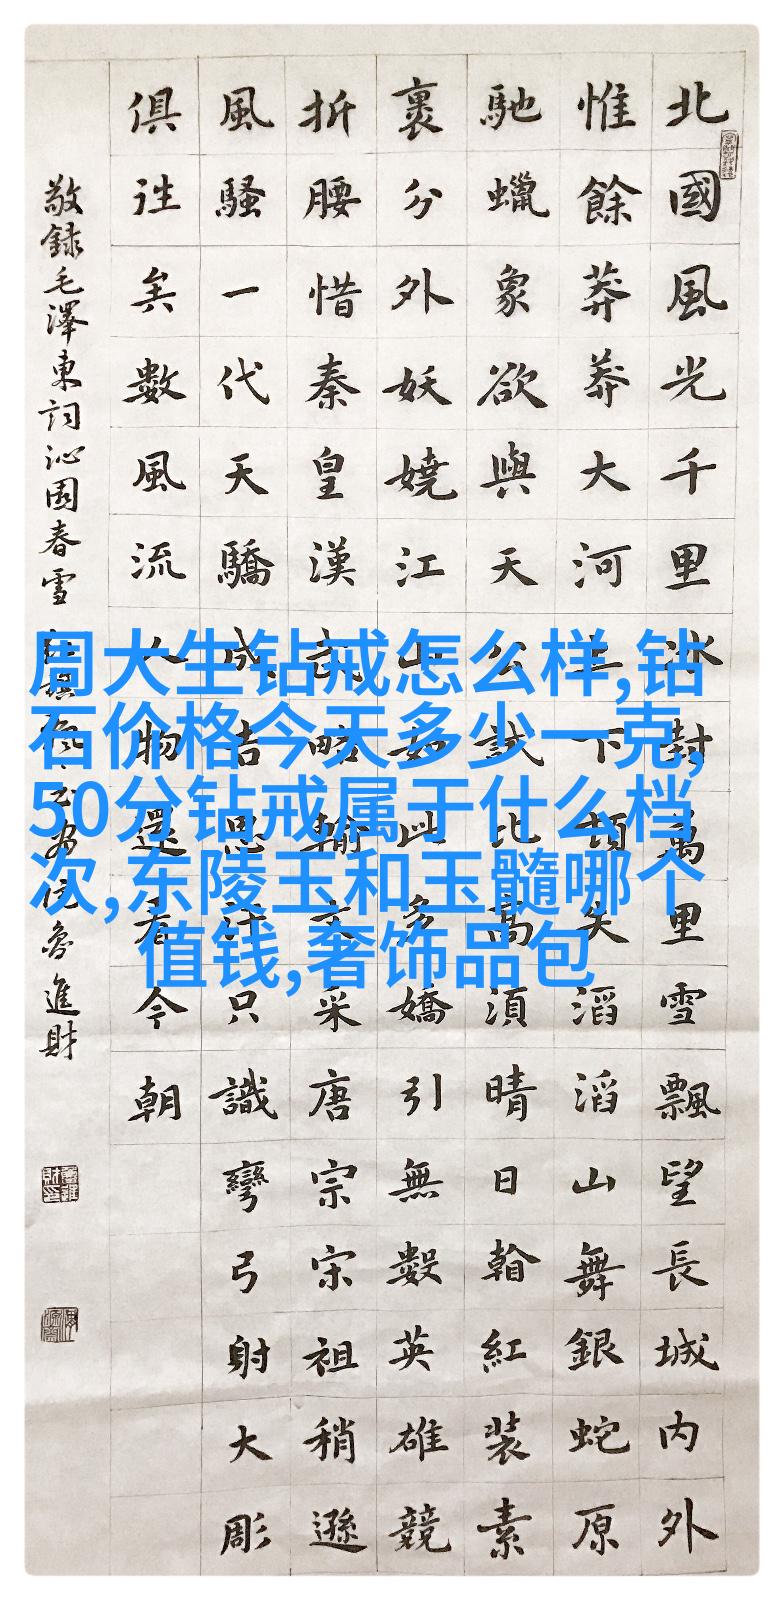 北國風光千里冰封萬里雪飄望長城內外
惟餘莽莽大河上下頓失滔滔山舞銀蛇原
馳蠟象欲與天公試比高須晴日看紅裝素
裹分外妖嬈江山如此多嬌引無數英雄競
折腰惜秦皇漢武略輸文采唐宗宋祖稍遜
風騷一代天驕成吉思汗只識彎弓射大彫
俱往矣數風流人物還看今朝
敬録毛澤東詞沁園春雪 魯進財
周大生钻戒怎么样,钻
石价格今天多少一克,
50分钻戒属于什么档
次,东陵玉和玉髓哪个
值钱,奢饰品包